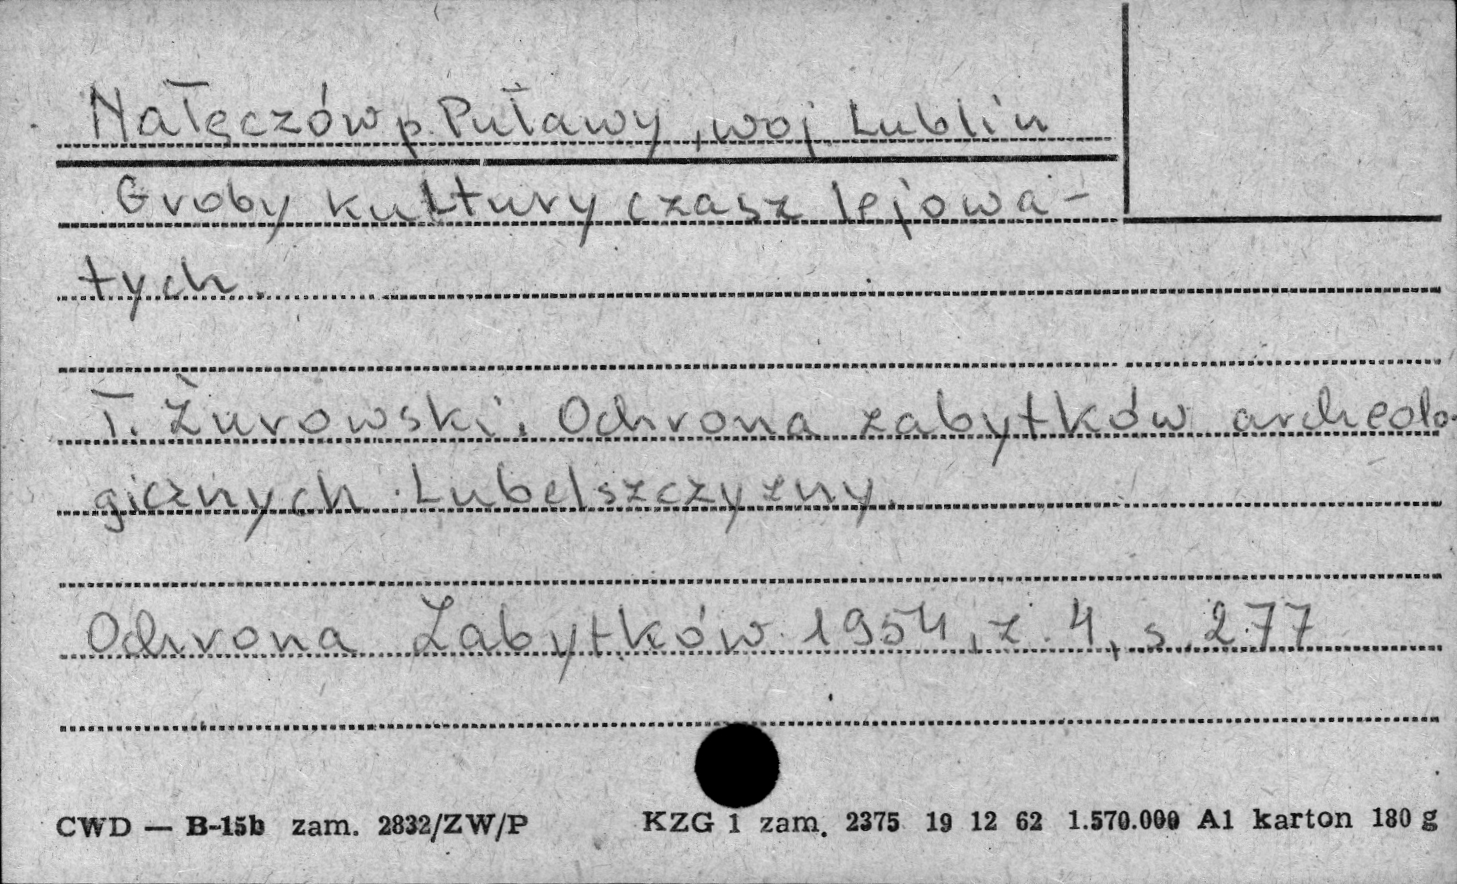 Nałęczów p. Puławy, woj. Lublin
Groby kultury czasz lejowa-
tych.
T. Żurowski. Ochrona zabytków archeolo-
gicznych Lubelszczyzny.
Ochrona Zabytków 1954, z. 4, s. 277
CWD — B-15b zam. 2832/ZW/P KZG 1 zam. 2375 19 12 62 1.570.000 A1 karton 180 g